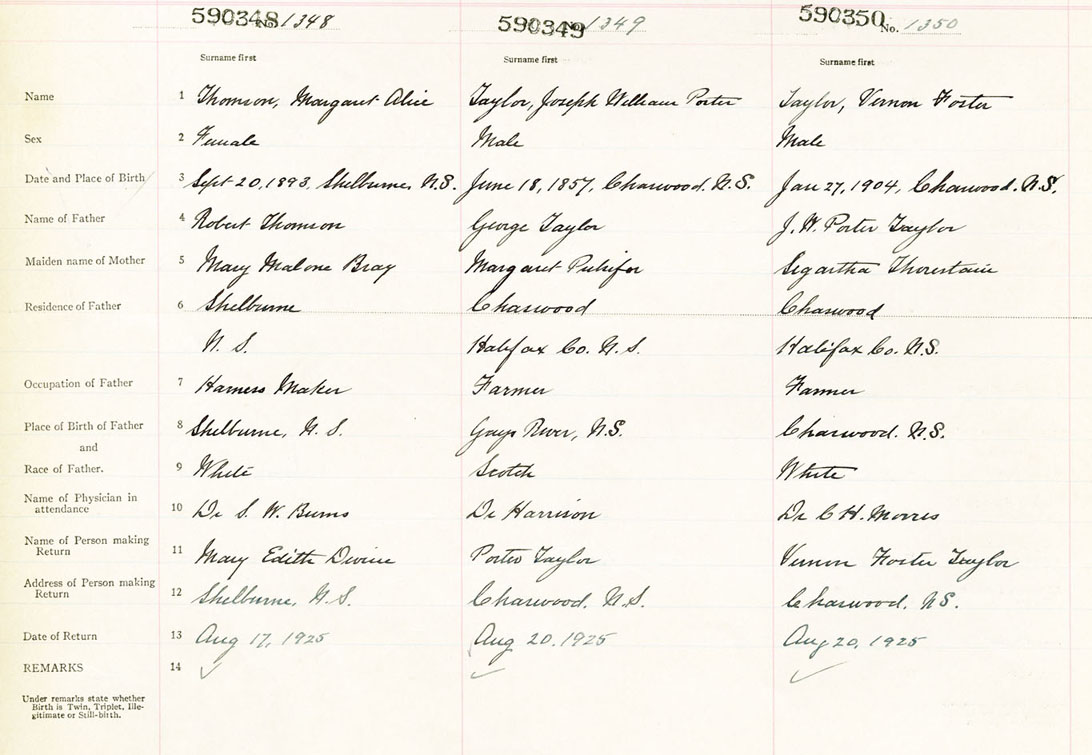 590348 No. 1348 590349 No. 1349 590350 No. 1350
Surname first Surname first Surname first
Name 1 Thomson, Margaret Alice Taylor, Joseph William Porter Taylor, Vernon Foster
Sex 2 Female Male Male
Date and Place of Birth 3 Sept 20, 1893, Shelburne, N.S. June 18, 1857, Chaswood. N.S. Jan 27, 1904, Chaswood. N.S.
Name of Father 4 Robert Thomson George Taylor J. W. Porter Taylor
Maiden name of Mother 5 Mary Malone Bray Margaret
Residence of Father 6 Shelburne Chaswood Chaswood
N. S. Halifax Co. N. S. Halifax Co. N.S.
Occupation of Father 7 Harness Maker Farmer Farmer
Place of Birth of Father 8 Shelburne, N. S. Gays River, N.S. Chaswood. N.S.
and
Race of Father. 9 White Scotch White
Name of Physician in
attendance 10 Dr S. W. Burns Dr Harrison Dr C H. Morris
Name of Person making
Return 11 Mary Edith Porter Taylor Vernon Foster Taylor
Address of Person making
Return 12 Shelburne, N.S. Chaswood. N.S. Chaswood. NS.
Date of Return 13 Aug 17, 1925 Aug 20, 1925 Aug 20, 1925
REMARKS 14 ✓ ✓ ✓
Under remarks state whether
Birth is Twin, Triplet, Ille-
gitimate or Still-birth.